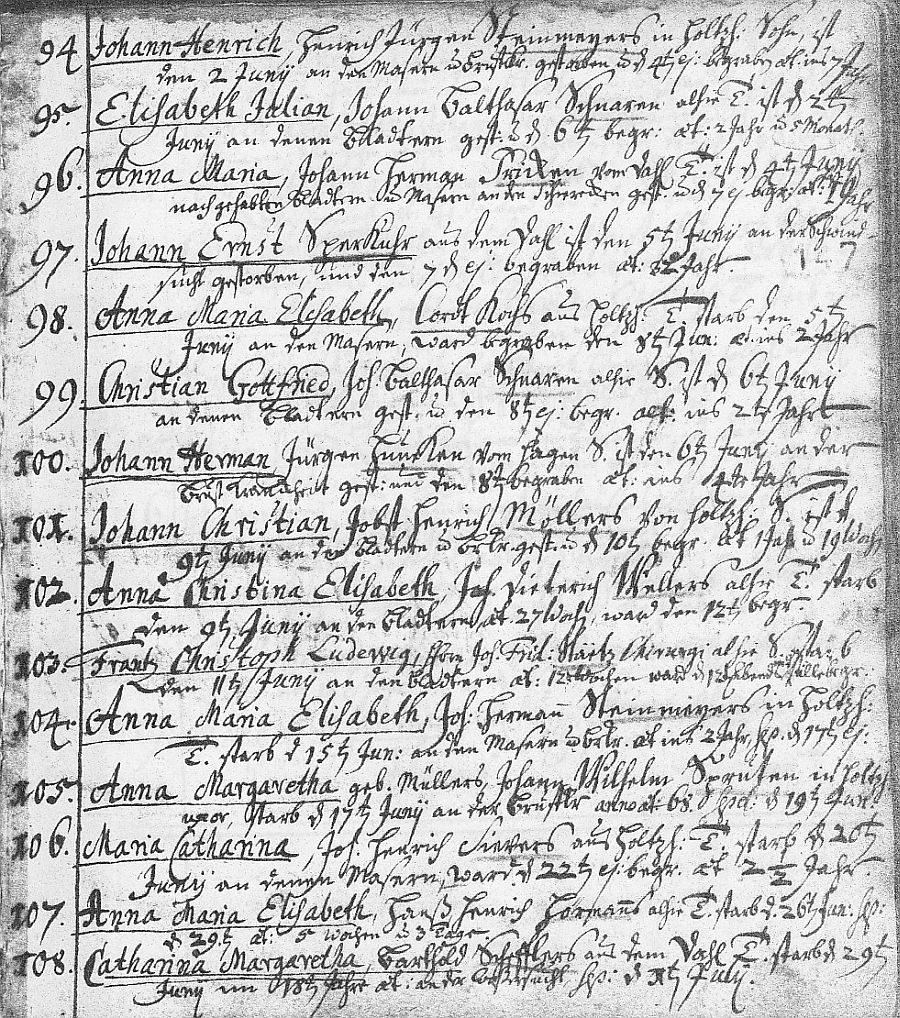 94 Johann Henrich, Henrich Jürgen Steinmeyers in Holtzh: Sohn, ist
den 2 Junÿ an den Masern u brustkr. gestorben u d 4t ej: begraben æt: ins 7 Jahr
95. Elisabeth Julian, Johann Balthasar Schnaren alhie T. ist d 2t
Junÿ an denen bladtern gest: u d 6t begr: æt: 2 Jahr u 5 Monath.
96. Anna Maria, Johann Herman Fricken vom Dahl T. ist d 4t Junÿ
nach gehabten bladtern u Masern an den gest. u d 7 ej. begr: æt: Jahr
97. Johann Ernst Sperkuhr aus dem Dahl ist den 5t Junÿ an der Schwind
sucht gestorben, und den 7 d ej: begraben æt: 82 Jahr.
98. Anna Maria Elisabeth, Cordt Kochs aus Holtzh. T. starb den 5t
Junÿ an den Masern, ward begraben den 8t Jun: æt. ins 2 Jahr
99 Christian Gottfried, Joh. Balthasar Schnaren alhie S. ist d 6t Junÿ
an denen bladtern gest. u den 8t ej. begr. æt: ins 2te Jahr
100. Johann Herman, Jürgen Huncken vom Hagen S. ist den 6t Junÿ an der
brust kranckheit gest: und den 8t begraben æt: ins 14te Jahr
101. Johann Christian, Jobst Henrich Möllers von Holtzh: S. ist d
9t Junÿ an den bladtern u brkr. gest: u d 10t begr. æt 1 Jah u 19 Woch.
102. Anna Christina Elisabeth, Joh. Dieterich Wellers alhie T. starb
den 9t Junÿ an den bladtern æt. 27 Woch, ward den 12t begr.
103. Frantz Christoph Ludewig, Herrn Joh. Frid: Staetz Chirurgi alhie S. starb
den 11t Junÿ an den bladtern æt: 12 Wochen ward d 12t Abend Stille begr.
104. Anna Maria Elisabeth, Joh: Hermañ Steinmeyers in Holtzh:
T. starb d 15t Jun: an den Masern u brkr. æt ins 2 Jahr, sp. d 17t ej.
105. Anna Margaretha geb. Müllers, Johann Wilhelm Spruten in Holtzh
uxor, starb d 17t Junÿ an der brustkr anno æt: 68. d 19t Jun.
106. Maria Catharina, Joh: Henrich Sievers aus Holtzh: T. starb d 20t
Junÿ an denen Masern, ward. d 22t ej: begr. æt 2 1/2 Jahr
107. Anna Maria Elisabeth, Hanß Henrich Hormanns alhie T. starb d. 26t Jun: sp:
d 29.t æt: 5 Wochen u 3 Tage.
108. Catharina Margaretha, Barthold Schefflers aus dem Dahl T. starb d 29t
Junÿ im 18t Jahre æt: an der sp: d 1t Julÿ.